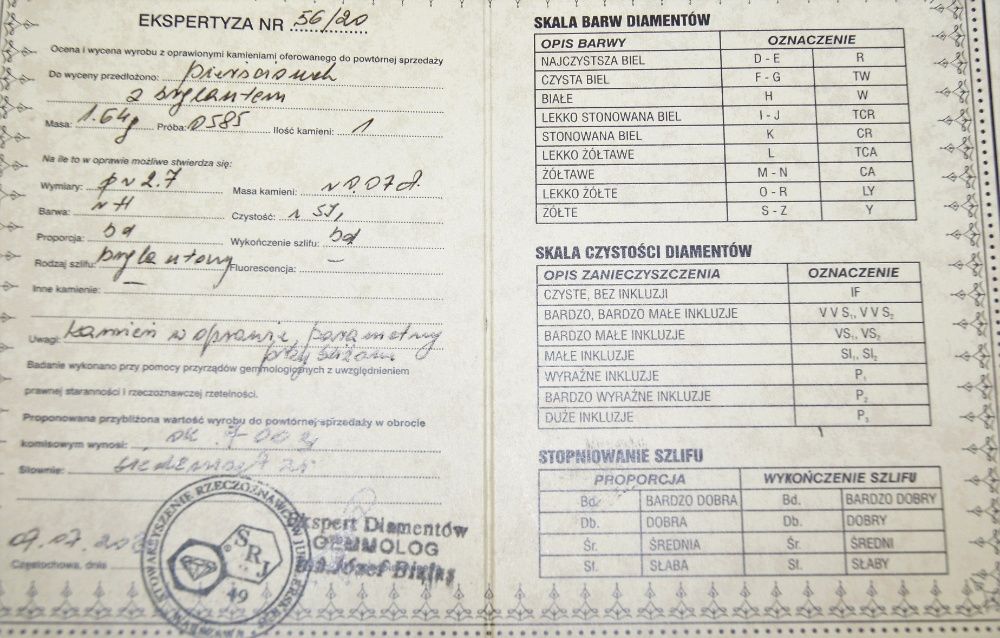 EKSPERTYZA NR 56/20
Ocena i wycena wyrobu z oprawionymi kamieniami oferowanego do powtórnej sprzedaży
Do wyceny przedłożono: pierścionek
z brylantem
Masa: 1.64g Próba: 0.585 Ilość kamieni: 1
Na ile to w oprawie możliwe stwierdza się:
Wymiary: φ ~ 2.7 Masa kamieni: ~ 0.07ct.
Barwa: ~ H Czystość: ~ SI₁
Proporcja: bd Wykończenie szlifu: bd
Rodzaj szlifu: brylantowy Fluorescencja: —
Inne kamienie: —
Uwagi: Kamień w oprawie, parametry
przybliżone
Badanie wykonano przy pomocy przyrządów gemmologicznych z uwzględnieniem
prawnej staranności i rzeczoznawczej rzetelności.
Proponowana przybliżona wartość wyrobu do powtórnej sprzedaży w obrocie
komisowym wynosi: ok. 700 zł
Słownie: siedemset zł
09.07.20
Częstochowa, dnia
STOWARZYSZENIE RZECZOZNAWCÓW JUBILERSKICH
WARSZAWA
SRJ
49
Ekspert Diamentów
GEMMOLOG
Józef
SKALA BARW DIAMENTÓW
OPIS BARWY OZNACZENIE
NAJCZYSTSZA BIEL D - E R
CZYSTA BIEL F - G TW
BIAŁE H W
LEKKO STONOWANA BIEL I - J TCR
STONOWANA BIEL K CR
LEKKO ŻÓŁTAWE L TCA
ŻÓŁTAWE M - N CA
LEKKO ŻÓŁTE O - R LY
ŻÓŁTE S - Z Y
SKALA CZYSTOŚCI DIAMENTÓW
OPIS ZANIECZYSZCZENIA OZNACZENIE
CZYSTE, BEZ INKLUZJI IF
BARDZO, BARDZO MAŁE INKLUZJE V V S₁, V V S₂
BARDZO MAŁE INKLUZJE VS₁, VS₂
MAŁE INKLUZJE SI₁, SI₂
WYRAŹNE INKLUZJE P₁
BARDZO WYRAŹNE INKLUZJE P₂
DUŻE INKLUZJE P₃
STOPNIOWANIE SZLIFU
PROPORCJA WYKOŃCZENIE SZLIFU
Bd. BARDZO DOBRA Bd. BARDZO DOBRY
Db. DOBRA Db. DOBRY
Śr. ŚREDNIA Śr. ŚREDNI
Sł. SŁABA Sł. SŁABY